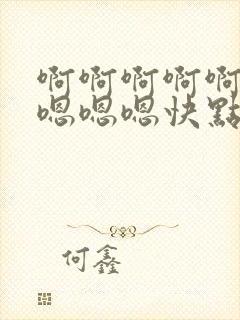 啊啊啊啊啊
嗯嗯嗯快點
何鑫